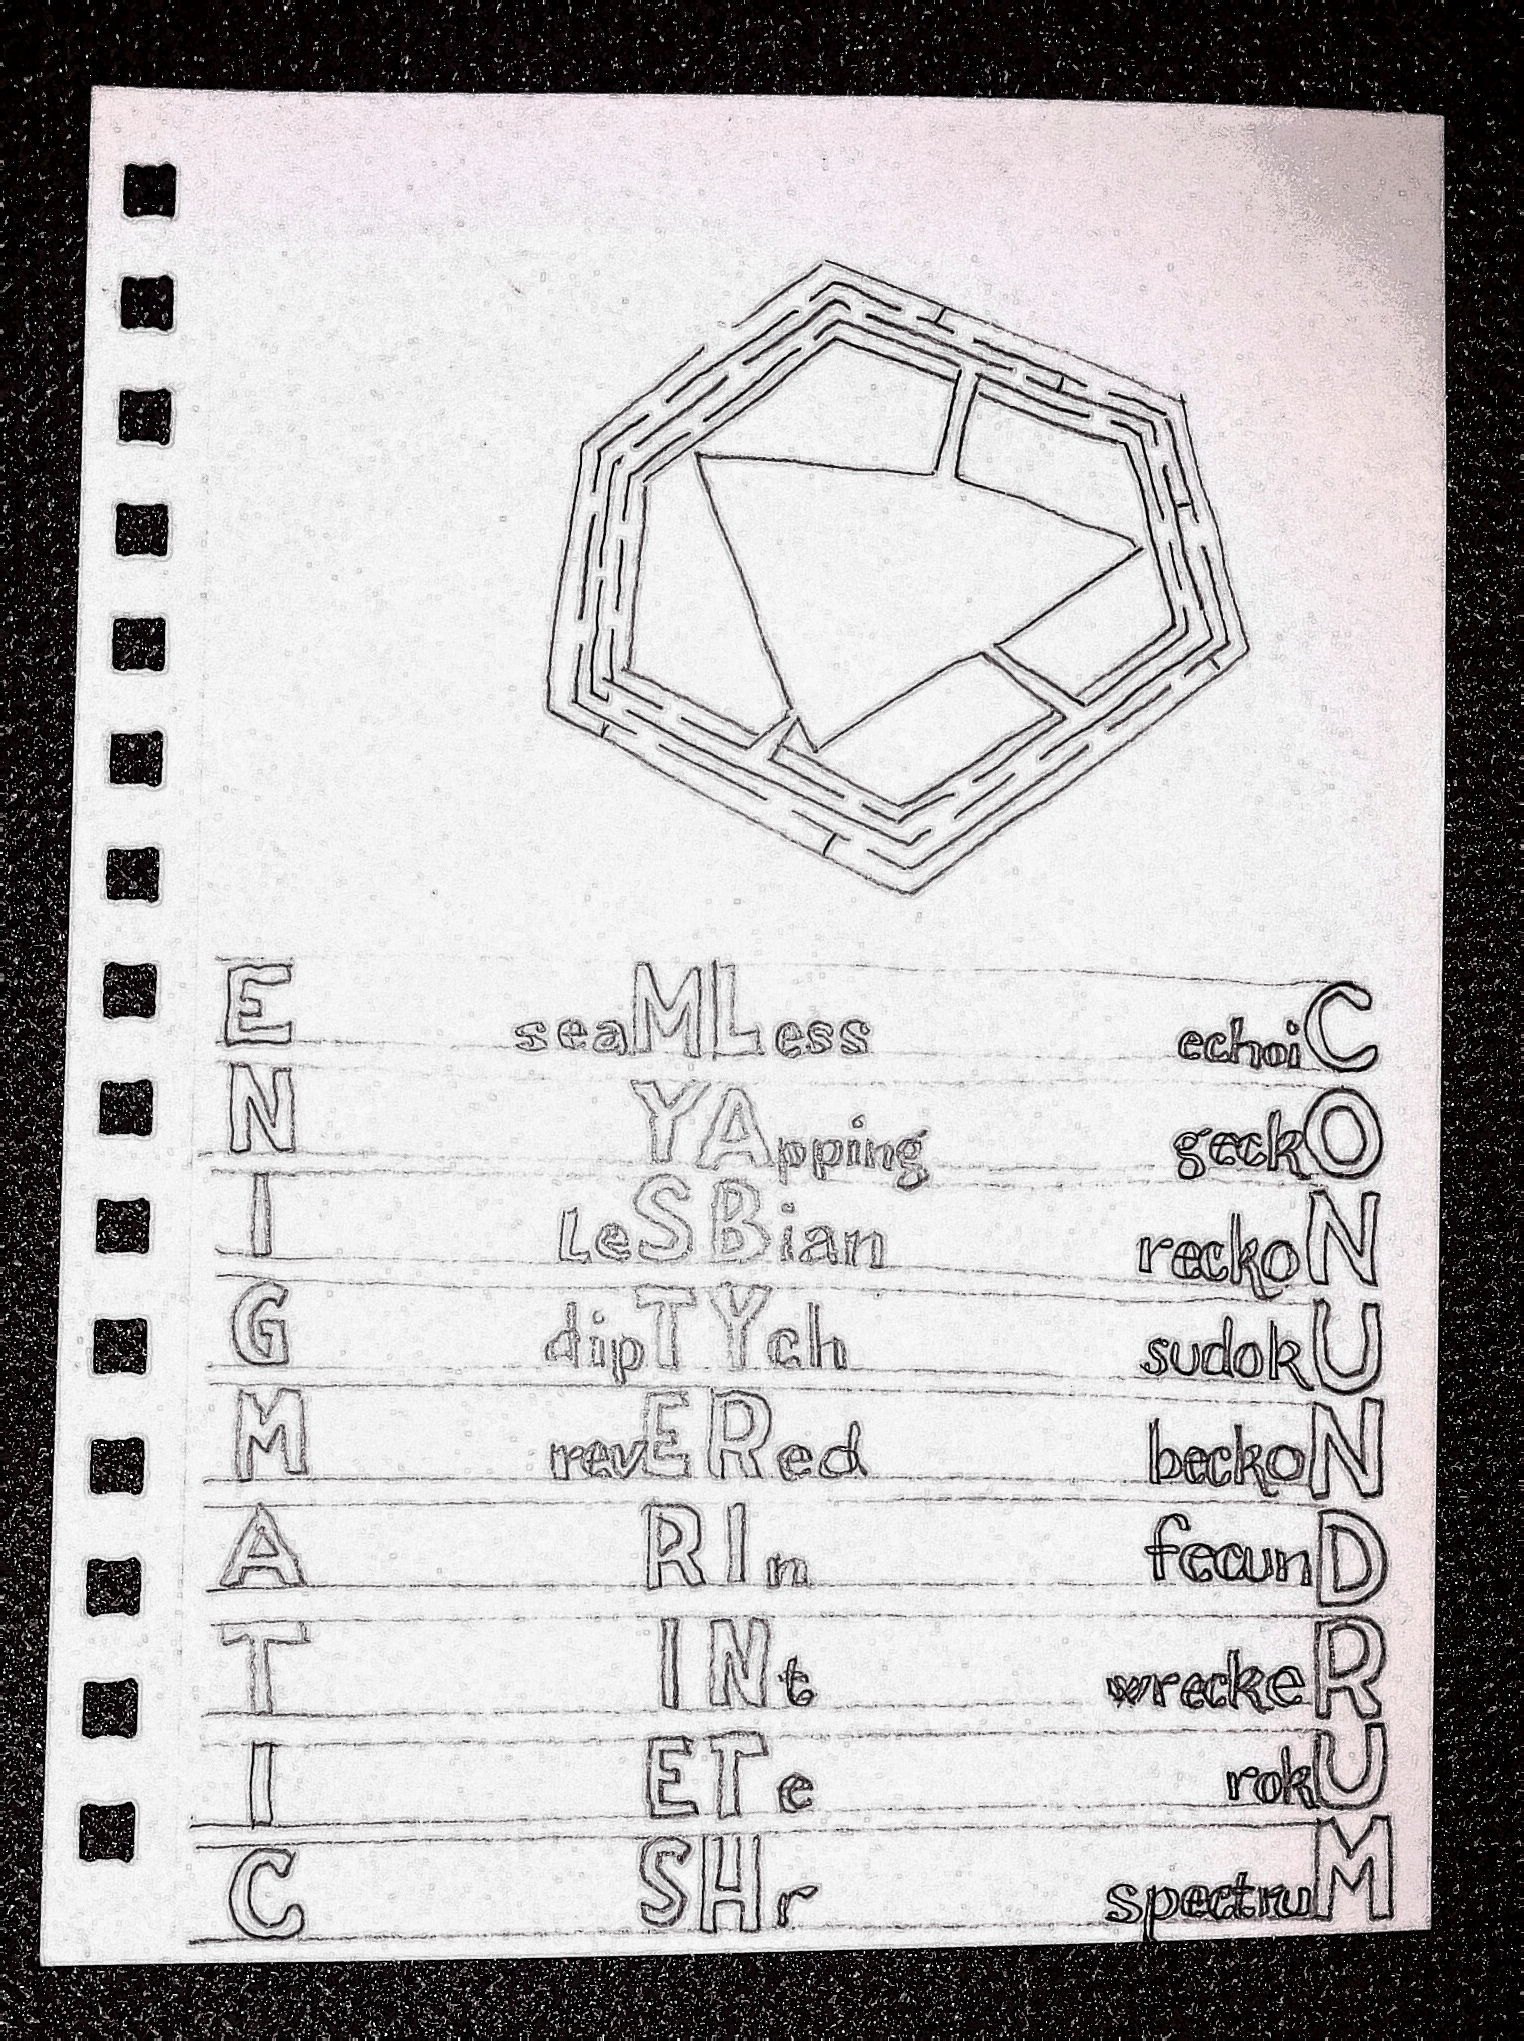 E seaMLess echoiC
N YApping geckO
I LeSBian reckoN
G dipTYch sudokU
M revERed beckoN
A RIn fecunD
T INt wreckeR
I ETe rokU
C SHr spectruM